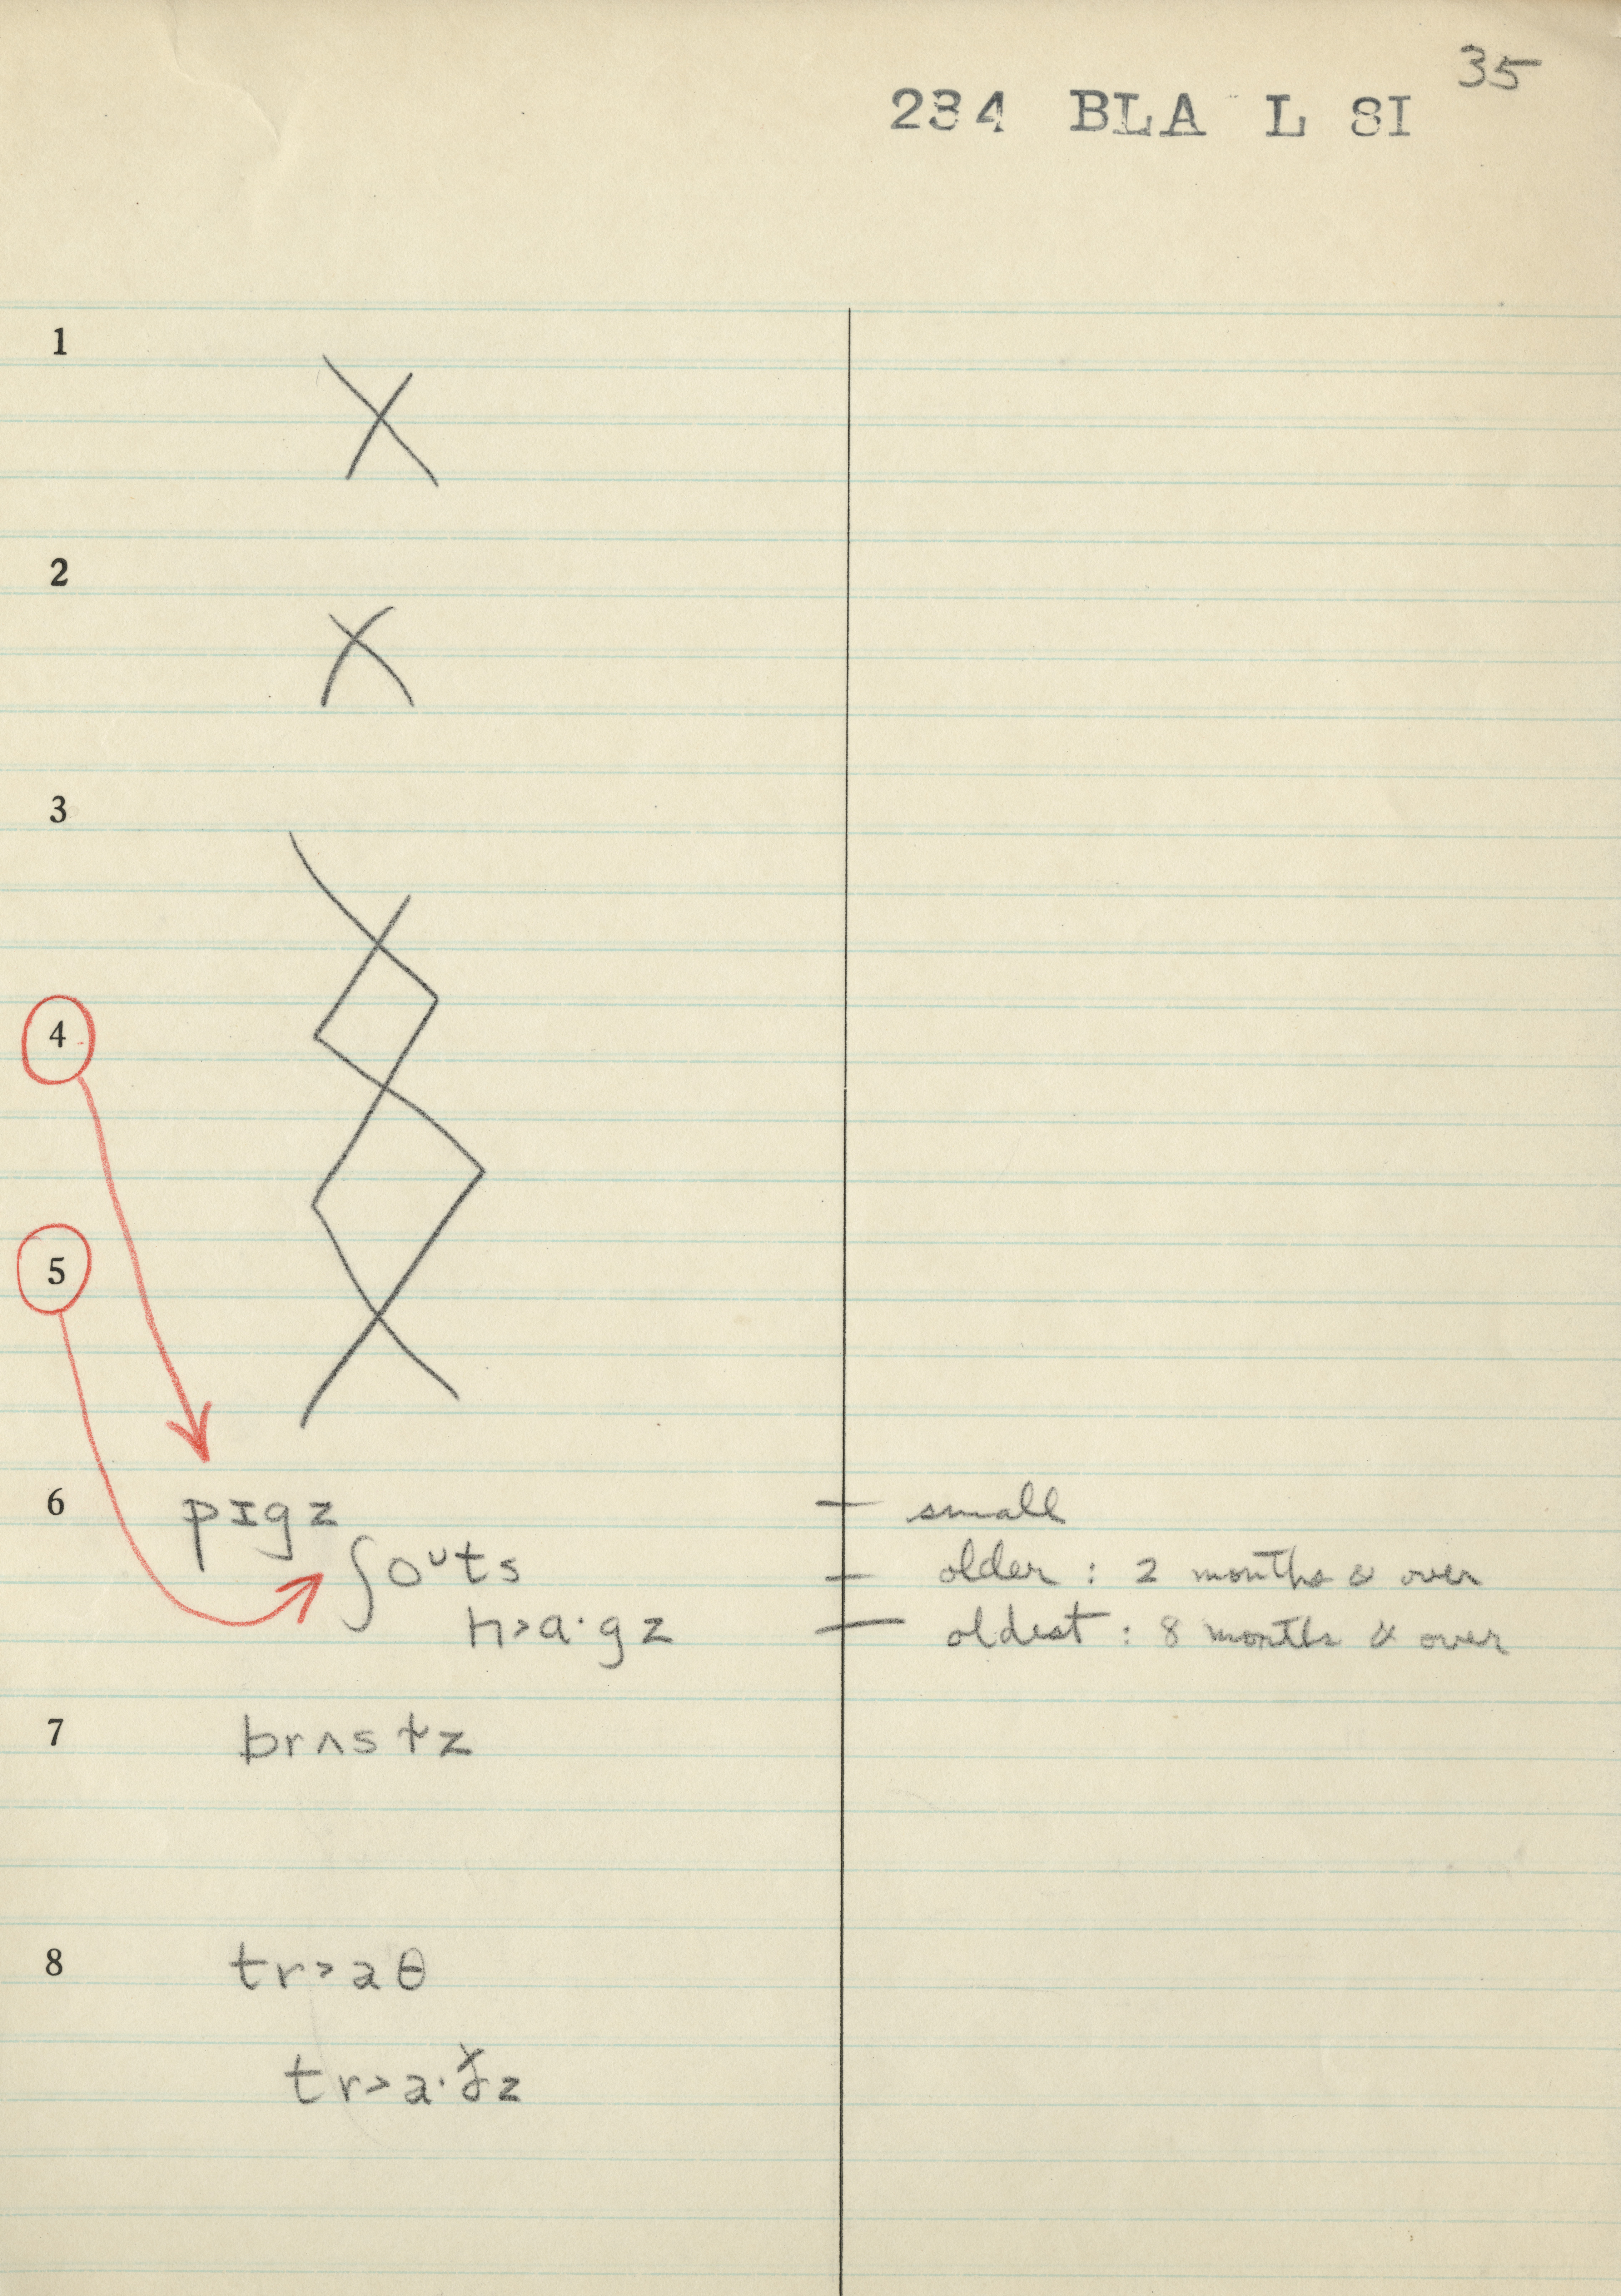 35
234 BLA L SI
1
X
2
X
3
4
5
6 pɪgz – small
ʃoᴜts – older : 2 months & over
h>a·gz – oldest : 8 months & over
7 brʌs
8 tr>aθ